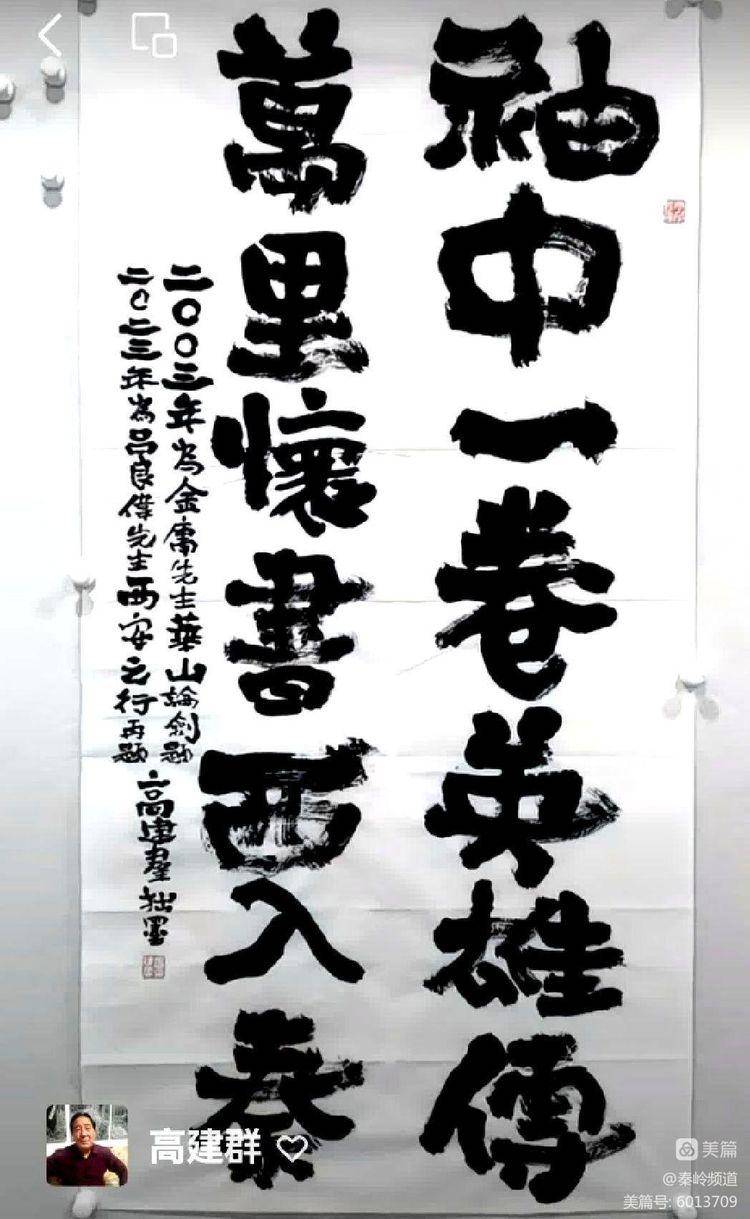 袖中一卷英雄傳
萬里懷書西入秦
二〇〇三年为金庸先生華山論劍題
二〇二三年为吕良偉先生西安之行再題
高建羣拙墨
高建群
美篇
@秦岭频道
美篇号: 6013709